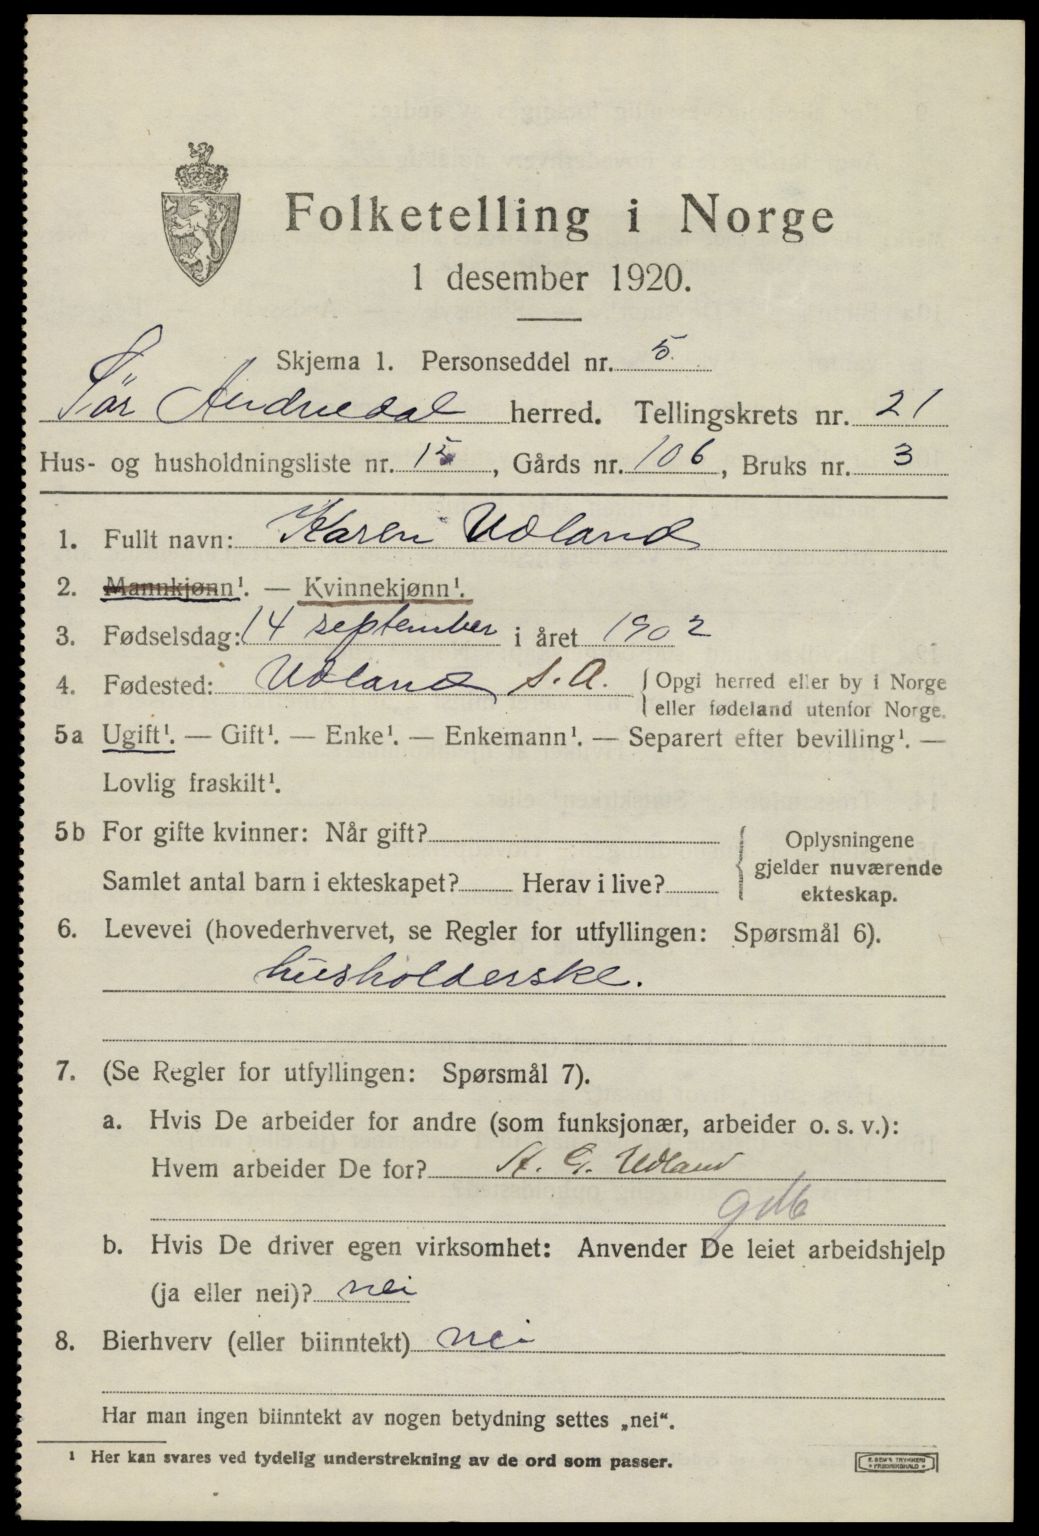 Folketelling i Norge
1 desember 1920.
Skjema 1. Personseddel nr. 5.
Sør Audnedal herred. Tellingskrets nr. 21
Hus- og husholdningsliste nr. 15, Gårds nr. 106, Bruks nr. 3
1. Fullt navn: Karen Udland
2. Mannkjønn¹. — Kvinnekjønn¹.
3. Fødselsdag: 14 september i året 1902
4. Fødested: Udland S. A. { Opgi herred eller by i Norge
eller fødeland utenfor Norge.
5a Ugift¹. — Gift¹. — Enke¹. — Enkemann¹. — Separert efter bevilling¹. —
Lovlig fraskilt¹.
5b For gifte kvinner: Når gift?
Samlet antal barn i ekteskapet? Herav i live?
{ Oplysningene
gjelder nuværende
ekteskap.
6. Levevei (hovederhvervet, se Regler for utfyllingen: Spørsmål 6).
husholderske.
7. (Se Regler for utfyllingen: Spørsmål 7).
a. Hvis De arbeider for andre (som funksjonær, arbeider o. s. v.):
Hvem arbeider De for? G. Udland
b. Hvis De driver egen virksomhet: Anvender De leiet arbeidshjelp
(ja eller nei)? nei
8. Bierhverv (eller biinntekt) nei
Har man ingen biinntekt av nogen betydning settes „nei“.
¹ Her kan svares ved tydelig understrekning av de ord som passer.